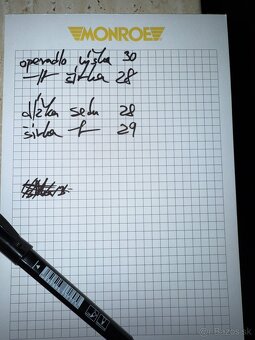 MONROE
operadlo výška 30
-||- šírka 28
dĺžka sedu 28
šírka -||- 29
Bazos.sk